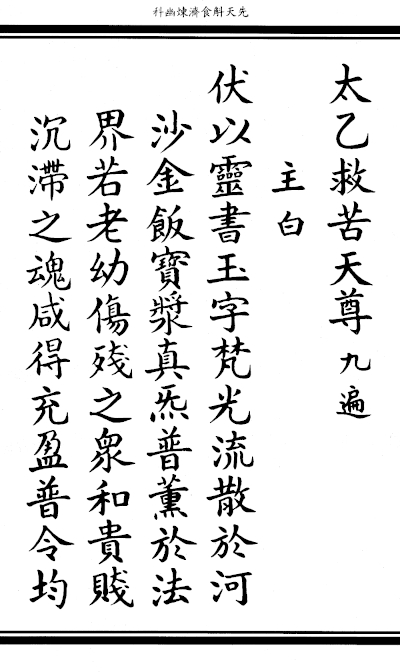 先天斛食濟煉幽科
太乙救苦天尊 九遍
主白
伏以靈書玉字梵光流散於河
沙金飯寶漿真炁普薰於法
界若老幼傷殘之衆和貴賤
沉滯之魂咸得充盈普令均